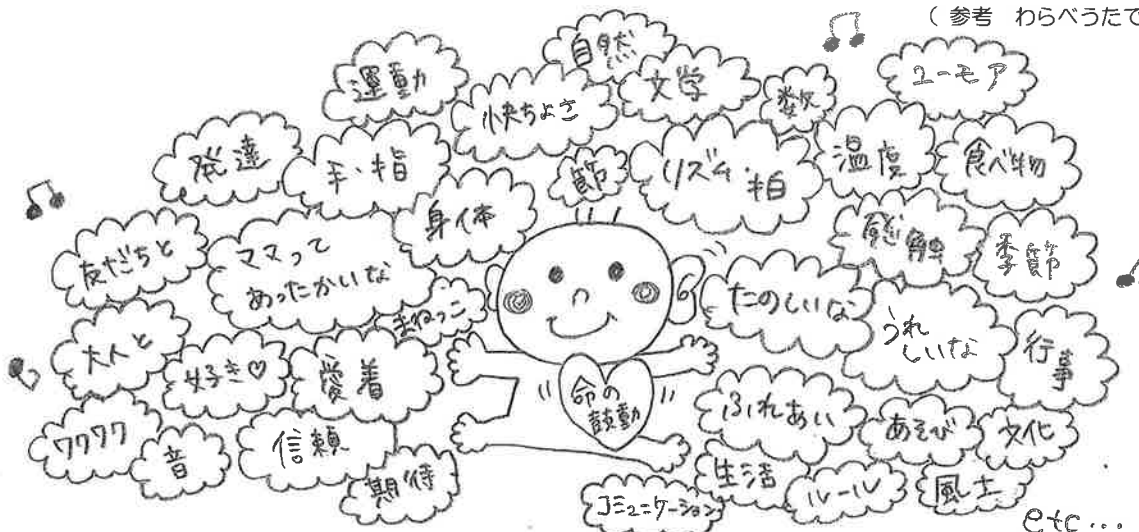 (参考 わらべうたで
自然
運動
快ちよさ
文学
数
ユーモア
発達
手・指
節
リズム・拍
温度
食べ物
身体
感触
季節
友だちと
ママって
あったかいな
まねっこ
たのしいな
うれ
しいな
行事
大人と
好き♡
愛着
命の
鼓動
ふれあい
あそび
文化
ワクワク
音
信頼
期待
生活
ルール
風土
コミュニケーション
etc...